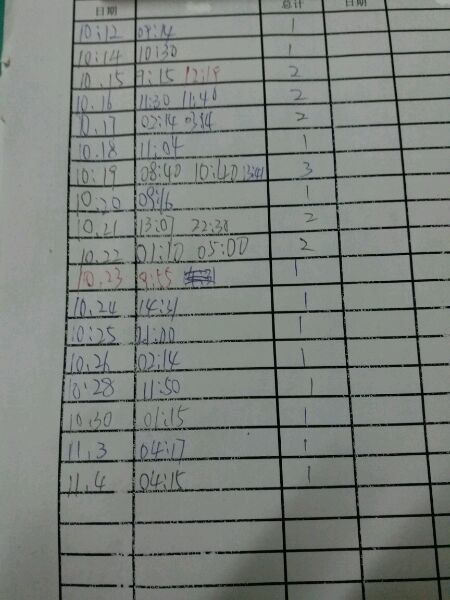 日期 总计 日期
10:12 09:14 1
10:14 10:30 1
10.15 9:15 12:19 2
10.16 11:30 11:40 2
10.17 02:14 0354 2
10.18 11:04 1
10:19 08:40 10:40 13:41 3
10:20 09:16 1
10.21 13:07 22:38 2
10.22 01:10 05:00 2
10.23 9:55 1
10.24 14:21 1
10:25 21:00 1
10.26 02:14 1
10.28 11:50 1
10.30 01:15 1
11.3 04:17 1
11.4 04:15 1